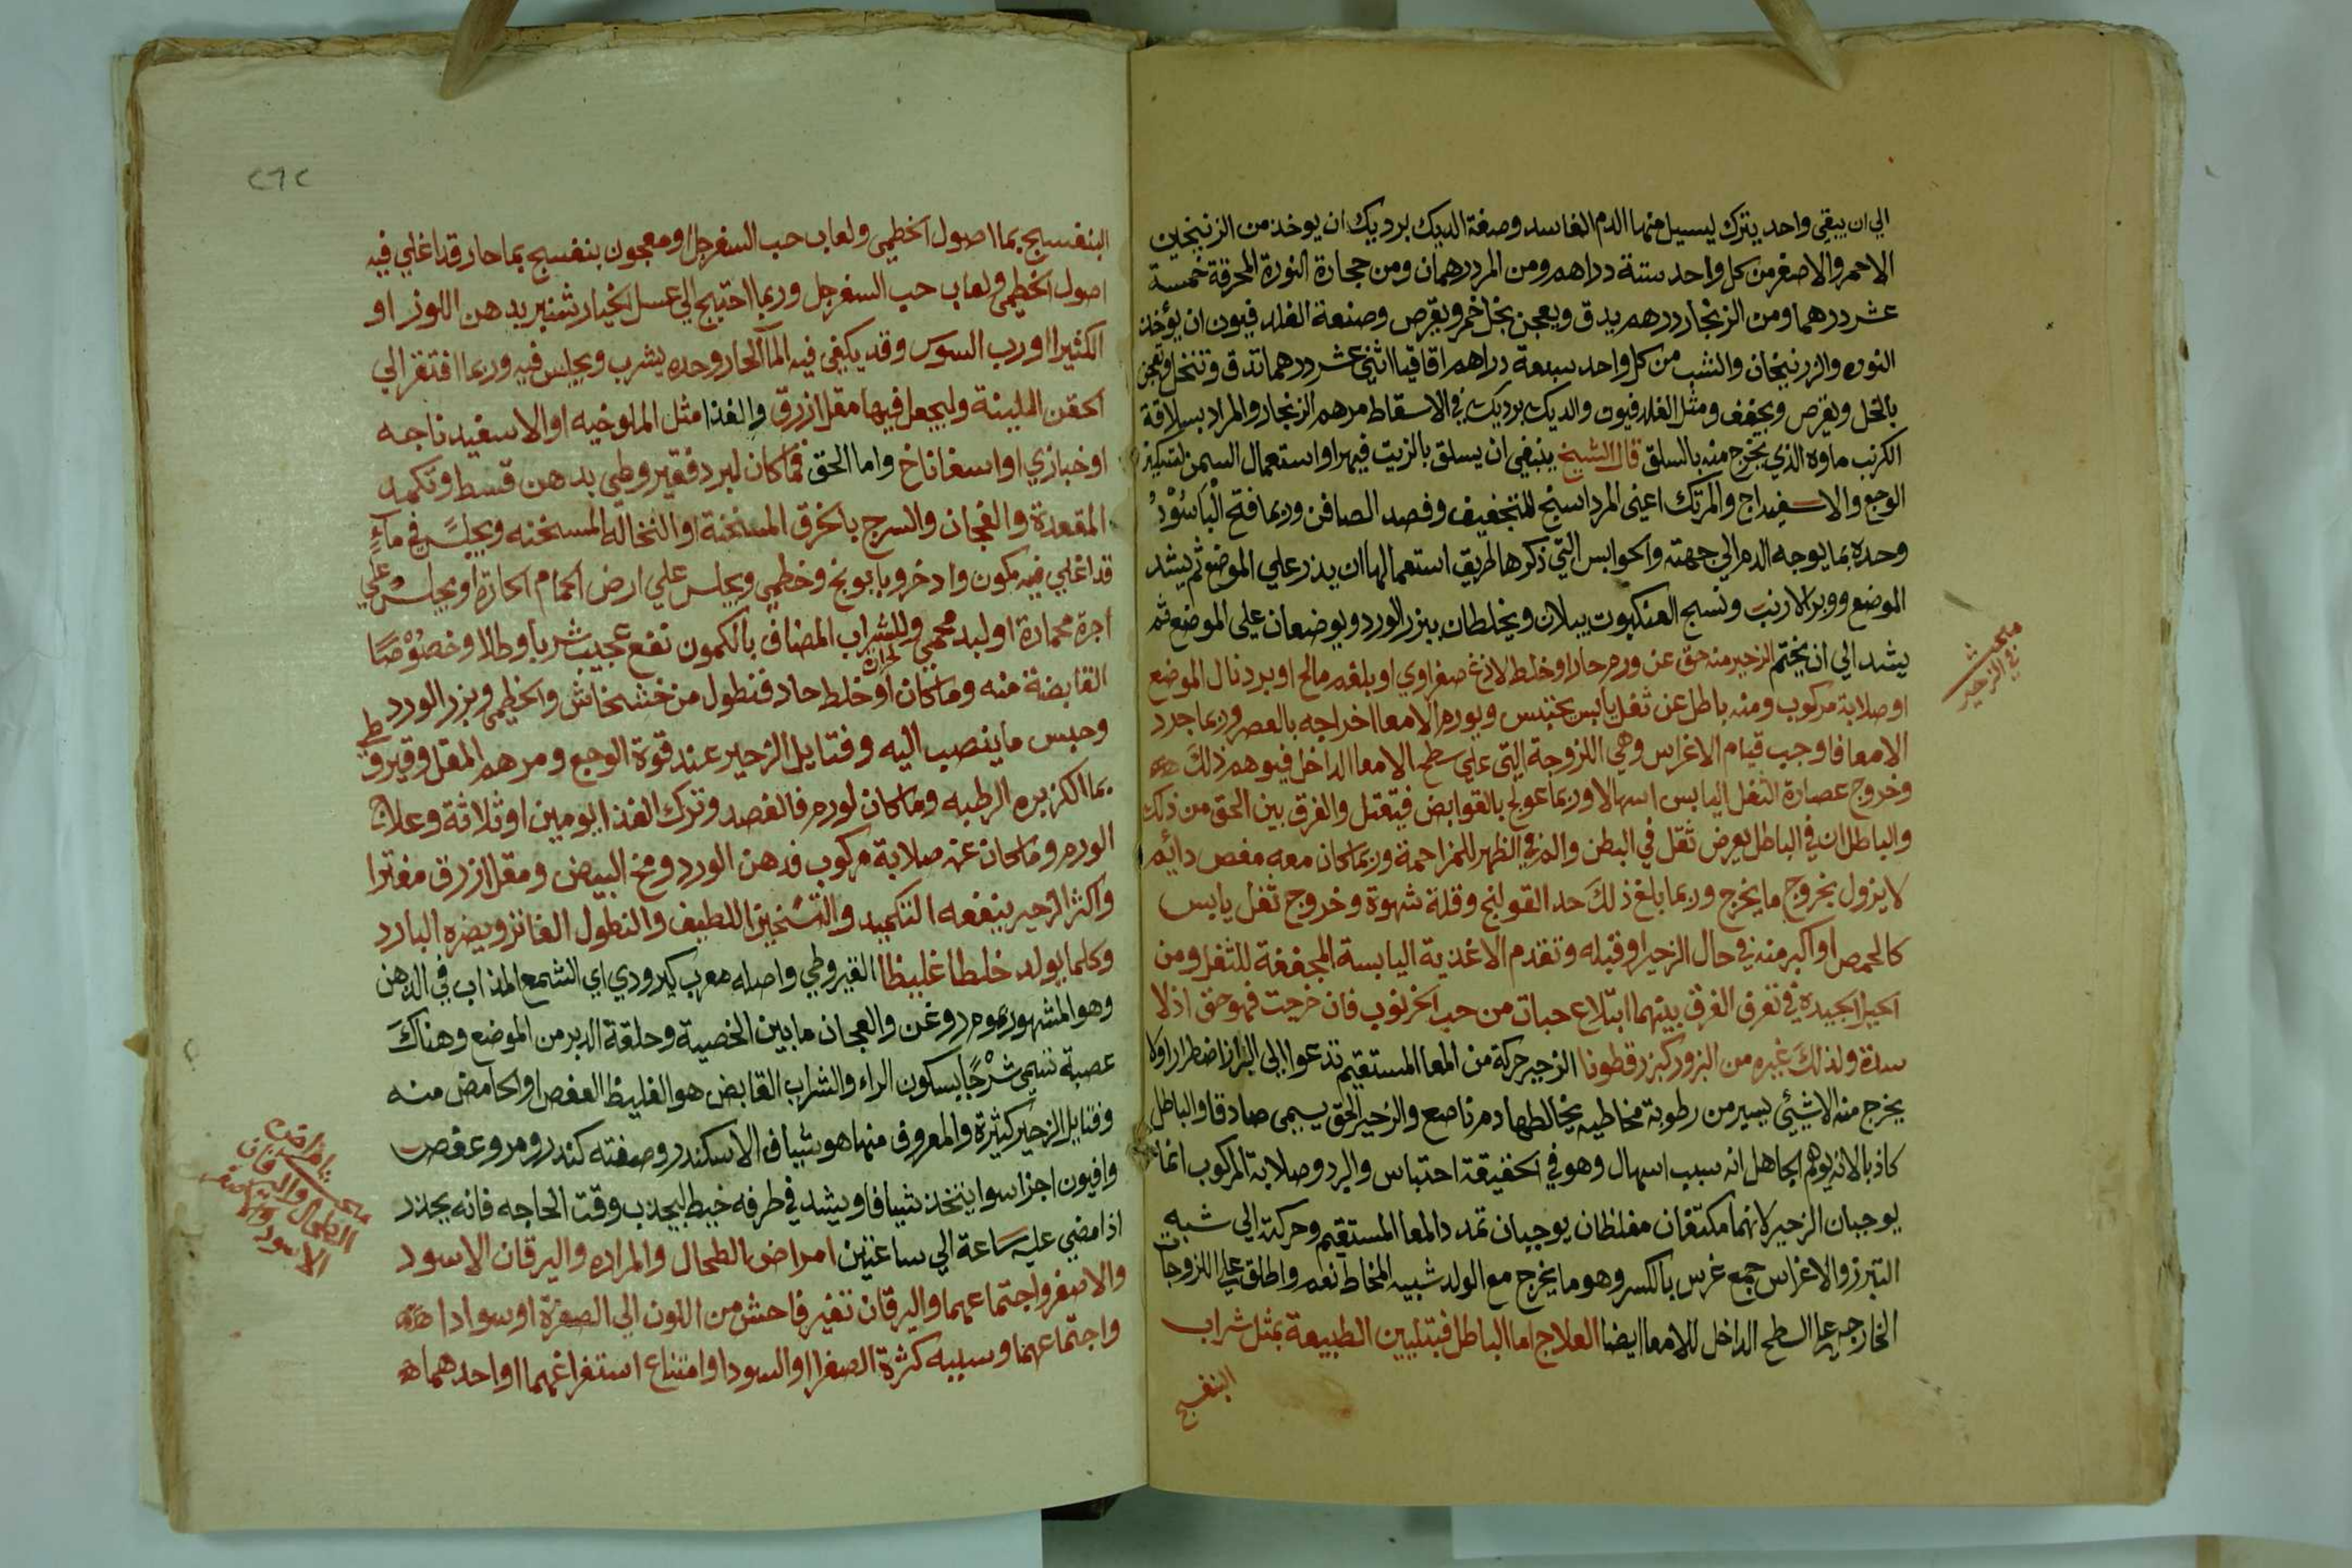 الي ان يبقي واحد يترك ليسيل منها الدم الفاسد وصفة الديك برديك ان يوخذ من الزرنيخين
الاحمر والاصفر من كل واحد ستة دراهم ومن المر درهمان ومن حجارة النورة المحرقة خمسة
عشر درهما ومن الزنجار درهم يدق ويعجن بخل خمر ويقرص وصنعة الفلد فيون ان يؤخذ
النوره والزرنيخان والشب من كل واحد سبعة دراهم اقاقيا اثني عشر درهما تدق وتنخل وتعجن
بالخل ويقرص ويجفف ومثل الفلد فيون والديك برديك في الاسقاط مرهم الزنجار والمراد بسلاقة
الكرنب ماوه الذي يخرج منه بالسلق قال الشيخ ينبغي ان يسلق بالزيت فيهرا واستعمال السمن لتسكين
الوجع والاسفيداج والمرتك اعني المرداسنج للتجفيف وفصد الصافن وربما فتح الْبَاسُوْرُ
وحده بما يوجه الدم الي جهته والحوابس التي ذكرها طريق استعمالها ان يذر علي الموضع ثم يشد
الموضع ووبر الارنب ونسج العنكبوت يبلان ويخلطان ببزر الورد ويوضعان علي الموضع ثم
يشد الي ان يختم الزحير منه حق عن ورم حار او خلط لاذغ صفراوي او بلغم مالح او برد نال الموضع
او صلابة مركوب ومنه باطل عن ثفل يابس يحتبس ويورم الامعا اخراجه بالعصر وربما جرد
الامعا فاوجب قيام الاغراس وهي اللزوجة التي علي سطح الامعا الداخل فيوهم ذلك
وخروج عصارة الثفل اليابس اسهالا وربما عولج بالقوابض فيقتل والفرق بين الحق من ذلك
والباطل ان في الباطل يعرض ثقل في البطن والم في الظهر للمزاحمة وربما كان معه مغص دائم
لا يزول بخروج ما يخرج وربما بلغ ذلك حد القولنج وقلة شهوة وخروج ثفل يابس
كالحمص او اكبر منه في حال الزحير او قبله وتقدم الاغذية اليابسة المجففة للثفل ومن
الحيل الجيدة في تعرف الفرق بينهما ابتلاع حبات من حب الخرنوب فان خرجت فهو حق اذ لا
سدة ولذلك غيره من البزور كبزر قطونا الزحير حركة من المعا المستقيم تدعوا الي البراز اضطرارا ولا
يخرج منه الا شيئ يسير من رطوبة مخاطيه يخالطها دم ناصع والزحير الحق يسمي صادقا والباطل
كاذبا لانه يوهم الجاهل انه سبب اسهال وهو في الحقيقة احتباس والبرد وصلابة المركوب انما
يوجبان الزحير لانهما مكثفان مغلظان يوجبان تمدد المعا المستقيم وحركته الي شبه
التبرز والاغراس جمع غرس بالكسر وهو ما يخرج مع الولد شبيه المخاط نعم واطلق علي اللزوجات
الخارجه علي السطح الداخل للامعا ايضا العلاج اما الباطل فبتليين الطبيعة بمثل شراب
البنفسج
مبحث
في الزحير
٢٦٢
البنفسج بما اصول الخطمي ولعاب حب السفرجل او معجون بنفسج بما حار قد اغلي فيه
اصول الخطمي ولعاب حب السفرجل وربما احتيج الي عسل الخيارشنبر بدهن اللوز او
الكثيرا او رب السوس وقد يكفي فيه المآ الحار وحده يشرب ويجلس فيه وربما افتقر الي
الحقن الملينة وليجعل فيها مقل ازرق والغذا مثل الملوخيه او الاسفيدناجه
او خبازي او اسفاناخ واما الحق فما كان لبرد فقيروطي بدهن قسط وتكمد
المقعدة والعجان والشرج بالخرق المسخنة او النخاله المسخنه ويجلس في مآءٍ
قد اغلي فيه كمون واذخر وبابونج وخطمي ويجلس علي ارض الحمام الحارة او يجلس علي
اجرة محماة او لبد محمي وللشراب المضاف بالكمون نفع عجيب شربا وطلا وخصُوْصًا
القابضة منه وما كان لحرارة او خلط حاد فنطول من خشخاش والخطمي وبزر الورد
وحبس ما ينصب اليه وفتايل الزحير عند قوة الوجع ومرهم المقل وقيروطي
بما الكزبره الرطبه وما كان لورم فالفصد وترك الغذا يومين او ثلاثة وعلاج
الورم وما كان عن صلابة مركوب فدهن الورد ومخ البيض ومقل ازرق مفترا
واكثر الزحير ينفعه التكميد والتسخين اللطيف والنطول الفاتر ويضره البارد
وكلما يولد خلطا غليظا القيروطي واصله معرب كيرودي اي الشمع المذاب في الدهن
وهو المشهور بموم روغن والعجان ما بين الخصية وحلقة الدبر من الموضع وهناك
عصبة تسمي شَرْجًا بسكون الراء والشراب القابض هو الغليظ العفص او الحامض منه
وفتايل الزحير كثيرة والمعروف منها هو شياف الاسكندر وصفته كندر ومر وعفص
وافيون اجزا سوا يتخذ شيافا ويشد في طرفه خيط ليجذب وقت الحاجه فانه يخدر
اذا مضي عليه ساعة الي ساعتين امراض الطحال والمراره واليرقان الاسود
والاصفر واجتماعهما واليرقان تغير فاحش من اللون الي الصفرة او سوادا
واجتماعهما وسببه كثرة الصفرا او السودا وامتناع استفراغهما او احدهما
مبحث امراض
الطحال واليرقان
الاسود